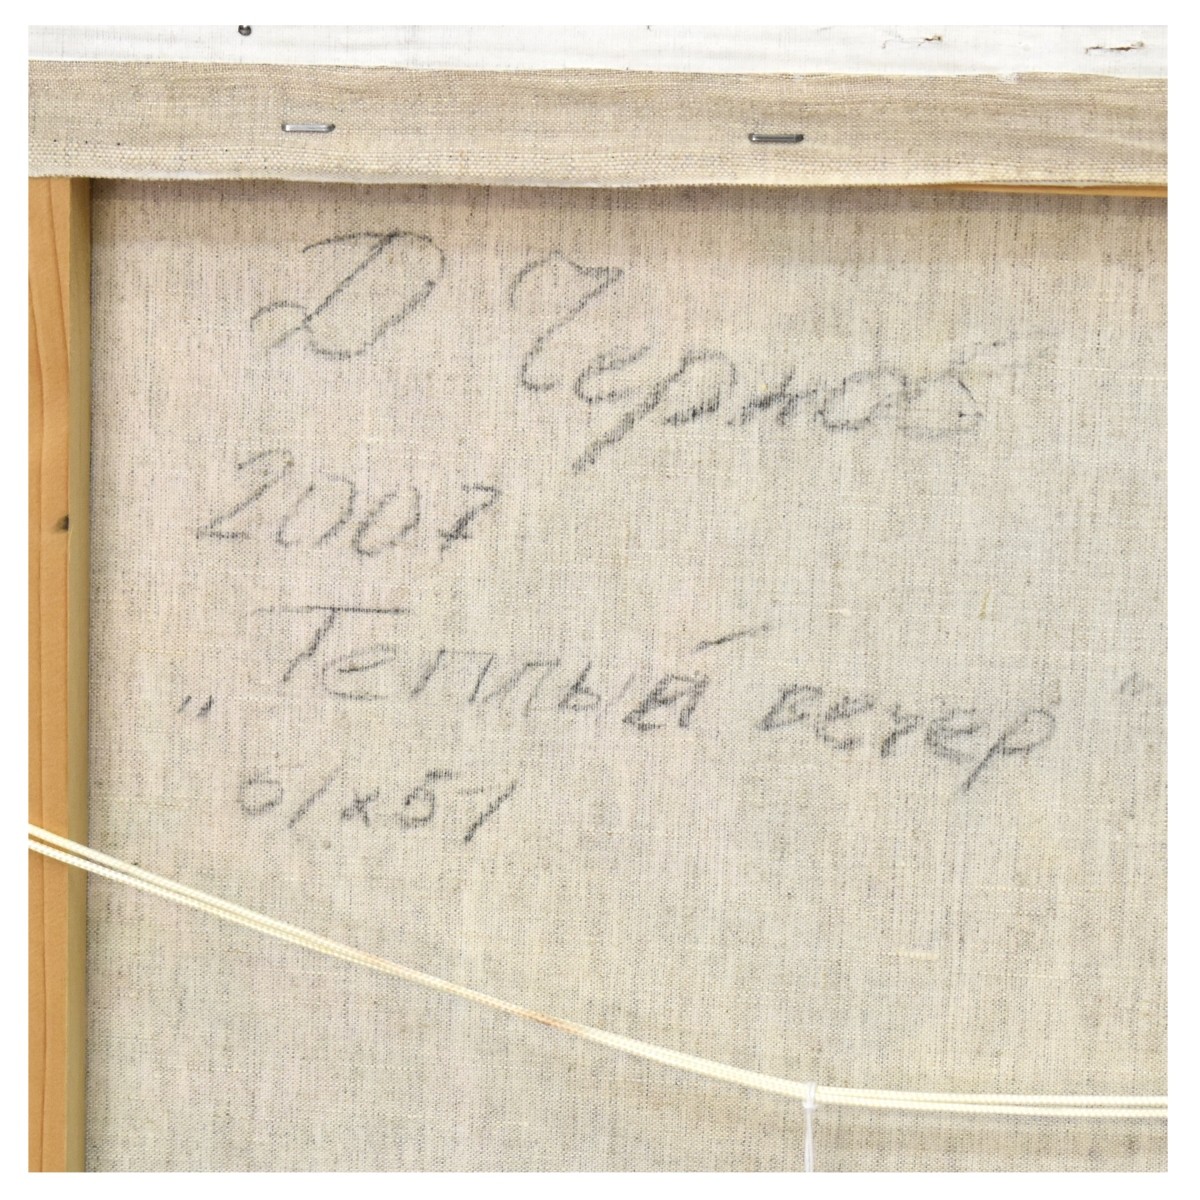 Д Чернов
2007
"Теплый вечер"
61x51